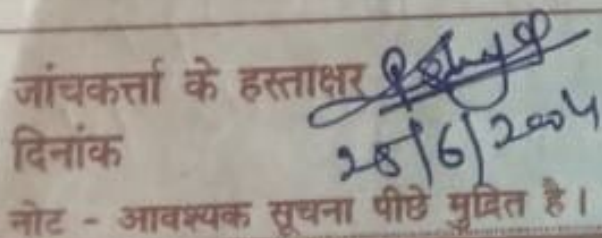 जांचकर्त्ता के हस्ताक्षर
दिनांक 28/6/2004
नोट - आवश्यक सूचना पीछे मुद्रित है।